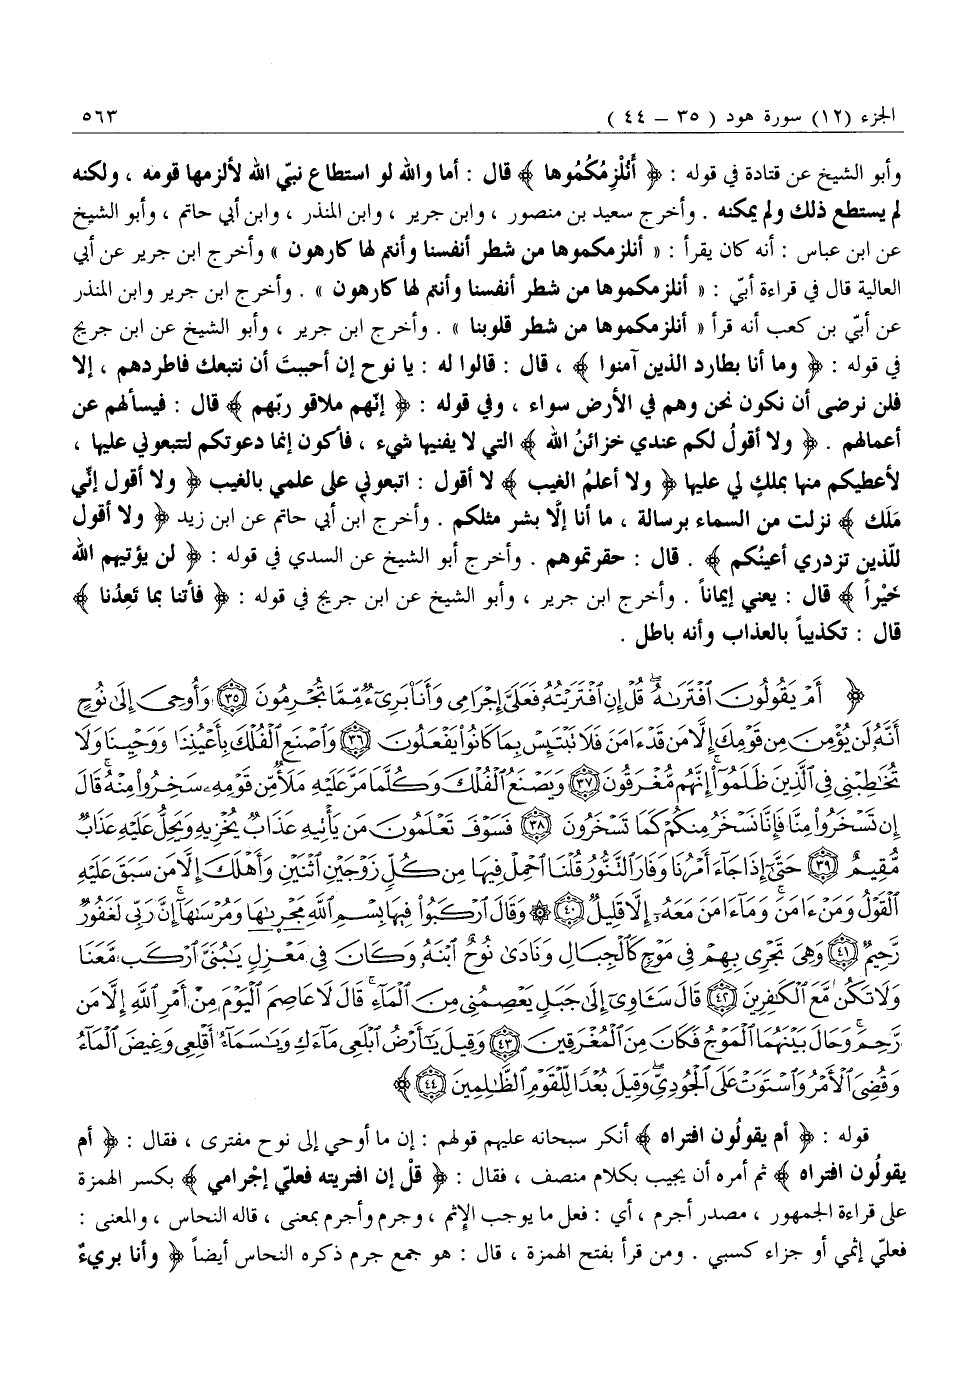 الجزء (١٢) سورة هود ( ٣٥ – ٤٤ ) ٥٦٣
وأبو الشيخ عن قتادة في قوله : ﴿ أَنُلْزِمُكُمُوها ﴾ قال : أما والله لو استطاع نبيّ الله لألزمها قومه ، ولكنه
لم يستطع ذلك ولم يمكنه . وأخرج سعيد بن منصور ، وابن جرير ، وابن المنذر ، وابن أبي حاتم ، وأبو الشيخ
عن ابن عباس : أنه كان يقرأ : « أنلزمكموها من شطر أنفسنا وأنتم لها كارهون » وأخرج ابن جرير عن أبي
العالية قال في قراءة أبيّ : « أنلزمكموها من شطر أنفسنا وأنتم لها كارهون » . وأخرج ابن جرير وابن المنذر
عن أبيّ بن كعب أنه قرأ « أنلزمكموها من شطر قلوبنا » . وأخرج ابن جرير ، وأبو الشيخ عن ابن جريج
في قوله : ﴿ وما أنا بطارد الذين آمنوا ﴾ ، قال : قالوا له : يا نوح إن أحببتَ أن نتبعك فاطردهم ، إلا
فلن نرضى أن نكون نحن وهم في الأرض سواء ، وفي قوله : ﴿ إنّهم ملاقو ربّهم ﴾ قال : فيسألهم عن
أعمالهم . ﴿ ولا أقولُ لكم عندي خزائنُ الله ﴾ التي لا يفنيها شيء ، فأكون إنما دعوتكم لتتبعوني عليها ،
لأعطيكم منها بملكٍ لي عليها ﴿ ولا أعلمُ الغيب ﴾ لا أقول : اتبعوني على علمي بالغيب ﴿ ولا أقول إنّي
مَلَك ﴾ نزلت من السماء برسالة ، ما أنا إلّا بشر مثلكم . وأخرج ابن أبي حاتم عن ابن زيد ﴿ ولا أقول
للّذين تزدري أعينُكم ﴾ . قال : حقرتموهم . وأخرج أبو الشيخ عن السدي في قوله : ﴿ لن يؤتيهم الله
خَيْراً ﴾ قال : يعني إيماناً . وأخرج ابن جرير ، وأبو الشيخ عن ابن جريج في قوله : ﴿ فأتنا بما تَعِدُنا ﴾
قال : تكذيباً بالعذاب وأنه باطل .
﴿ أَمْ يَقُولُونَ افْتَرَىٰهُ قُلْ إِنِ افْتَرَيْتُهُ فَعَلَيَّ إِجْرَامِي وَأَنَا۠ بَرِيٓءٌ مِّمَّا تُجْرِمُونَ ٣٥ وَأُوحِيَ إِلَىٰ نُوحٍ
أَنَّهُ لَن يُؤْمِنَ مِن قَوْمِكَ إِلَّا مَن قَدْ ءَامَنَ فَلَا تَبْتَئِسْ بِمَا كَانُوا يَفْعَلُونَ ٣٦ وَاصْنَعِ الْفُلْكَ بِأَعْيُنِنَا وَوَحْيِنَا وَلَا
تُخَاطِبْنِي فِي الَّذِينَ ظَلَمُوٓا إِنَّهُم مُّغْرَقُونَ ٣٧ وَيَصْنَعُ الْفُلْكَ وَكُلَّمَا مَرَّ عَلَيْهِ مَلَأٌ مِّن قَوْمِهِ سَخِرُوا مِنْهُ قَالَ
إِن تَسْخَرُوا مِنَّا فَإِنَّا نَسْخَرُ مِنكُمْ كَمَا تَسْخَرُونَ ٣٨ فَسَوْفَ تَعْلَمُونَ مَن يَأْتِيهِ عَذَابٌ يُخْزِيهِ وَيَحِلُّ عَلَيْهِ عَذَابٌ
مُّقِيمٌ ٣٩ حَتَّىٰٓ إِذَا جَآءَ أَمْرُنَا وَفَارَ التَّنُّورُ قُلْنَا احْمِلْ فِيهَا مِن كُلٍّ زَوْجَيْنِ اثْنَيْنِ وَأَهْلَكَ إِلَّا مَن سَبَقَ عَلَيْهِ
الْقَوْلُ وَمَنْ ءَامَنَ وَمَآ ءَامَنَ مَعَهُۥٓ إِلَّا قَلِيلٌ ٤٠ ۞ وَقَالَ ارْكَبُوا فِيهَا بِسْمِ اللَّهِ مَجْر۪ىٰهَا وَمُرْسَىٰهَآ إِنَّ رَبِّي لَغَفُورٌ
رَّحِيمٌ ٤١ وَهِيَ تَجْرِي بِهِمْ فِي مَوْجٍ كَالْجِبَالِ وَنَادَىٰ نُوحٌ ابْنَهُ وَكَانَ فِي مَعْزِلٍ يَٰبُنَيَّ ارْكَب مَّعَنَا
وَلَا تَكُن مَّعَ الْكَٰفِرِينَ ٤٢ قَالَ سَـَٔاوِيٓ إِلَىٰ جَبَلٍ يَعْصِمُنِي مِنَ الْمَآءِ قَالَ لَا عَاصِمَ الْيَوْمَ مِنْ أَمْرِ اللَّهِ إِلَّا مَن
رَّحِمَ وَحَالَ بَيْنَهُمَا الْمَوْجُ فَكَانَ مِنَ الْمُغْرَقِينَ ٤٣ وَقِيلَ يَٰٓأَرْضُ ابْلَعِي مَآءَكِ وَيَٰسَمَآءُ أَقْلِعِي وَغِيضَ الْمَآءُ
وَقُضِيَ الْأَمْرُ وَاسْتَوَتْ عَلَى الْجُودِيِّ وَقِيلَ بُعْدًا لِّلْقَوْمِ الظَّٰلِمِينَ ٤٤ ﴾
قوله : ﴿ أم يقولُون افتراه ﴾ أنكر سبحانه عليهم قولهم : إن ما أوحي إلى نوح مفترى ، فقال : ﴿ أم
يقولُون افتراه ﴾ ثم أمره أن يجيب بكلام منصف ، فقال : ﴿ قلْ إن افتريته فعليّ إجْرامي ﴾ بكسر الهمزة
على قراءة الجمهور ، مصدر أجرم ، أي : فعل ما يوجب الإثم ، وجرم وأجرم بمعنى ، قاله النحاس ، والمعنى :
فعليّ إثمي أو جزاء كسبي . ومن قرأ بفتح الهمزة ، قال : هو جمع جرم ذكره النحاس أيضاً ﴿ وأنا بريءٌ